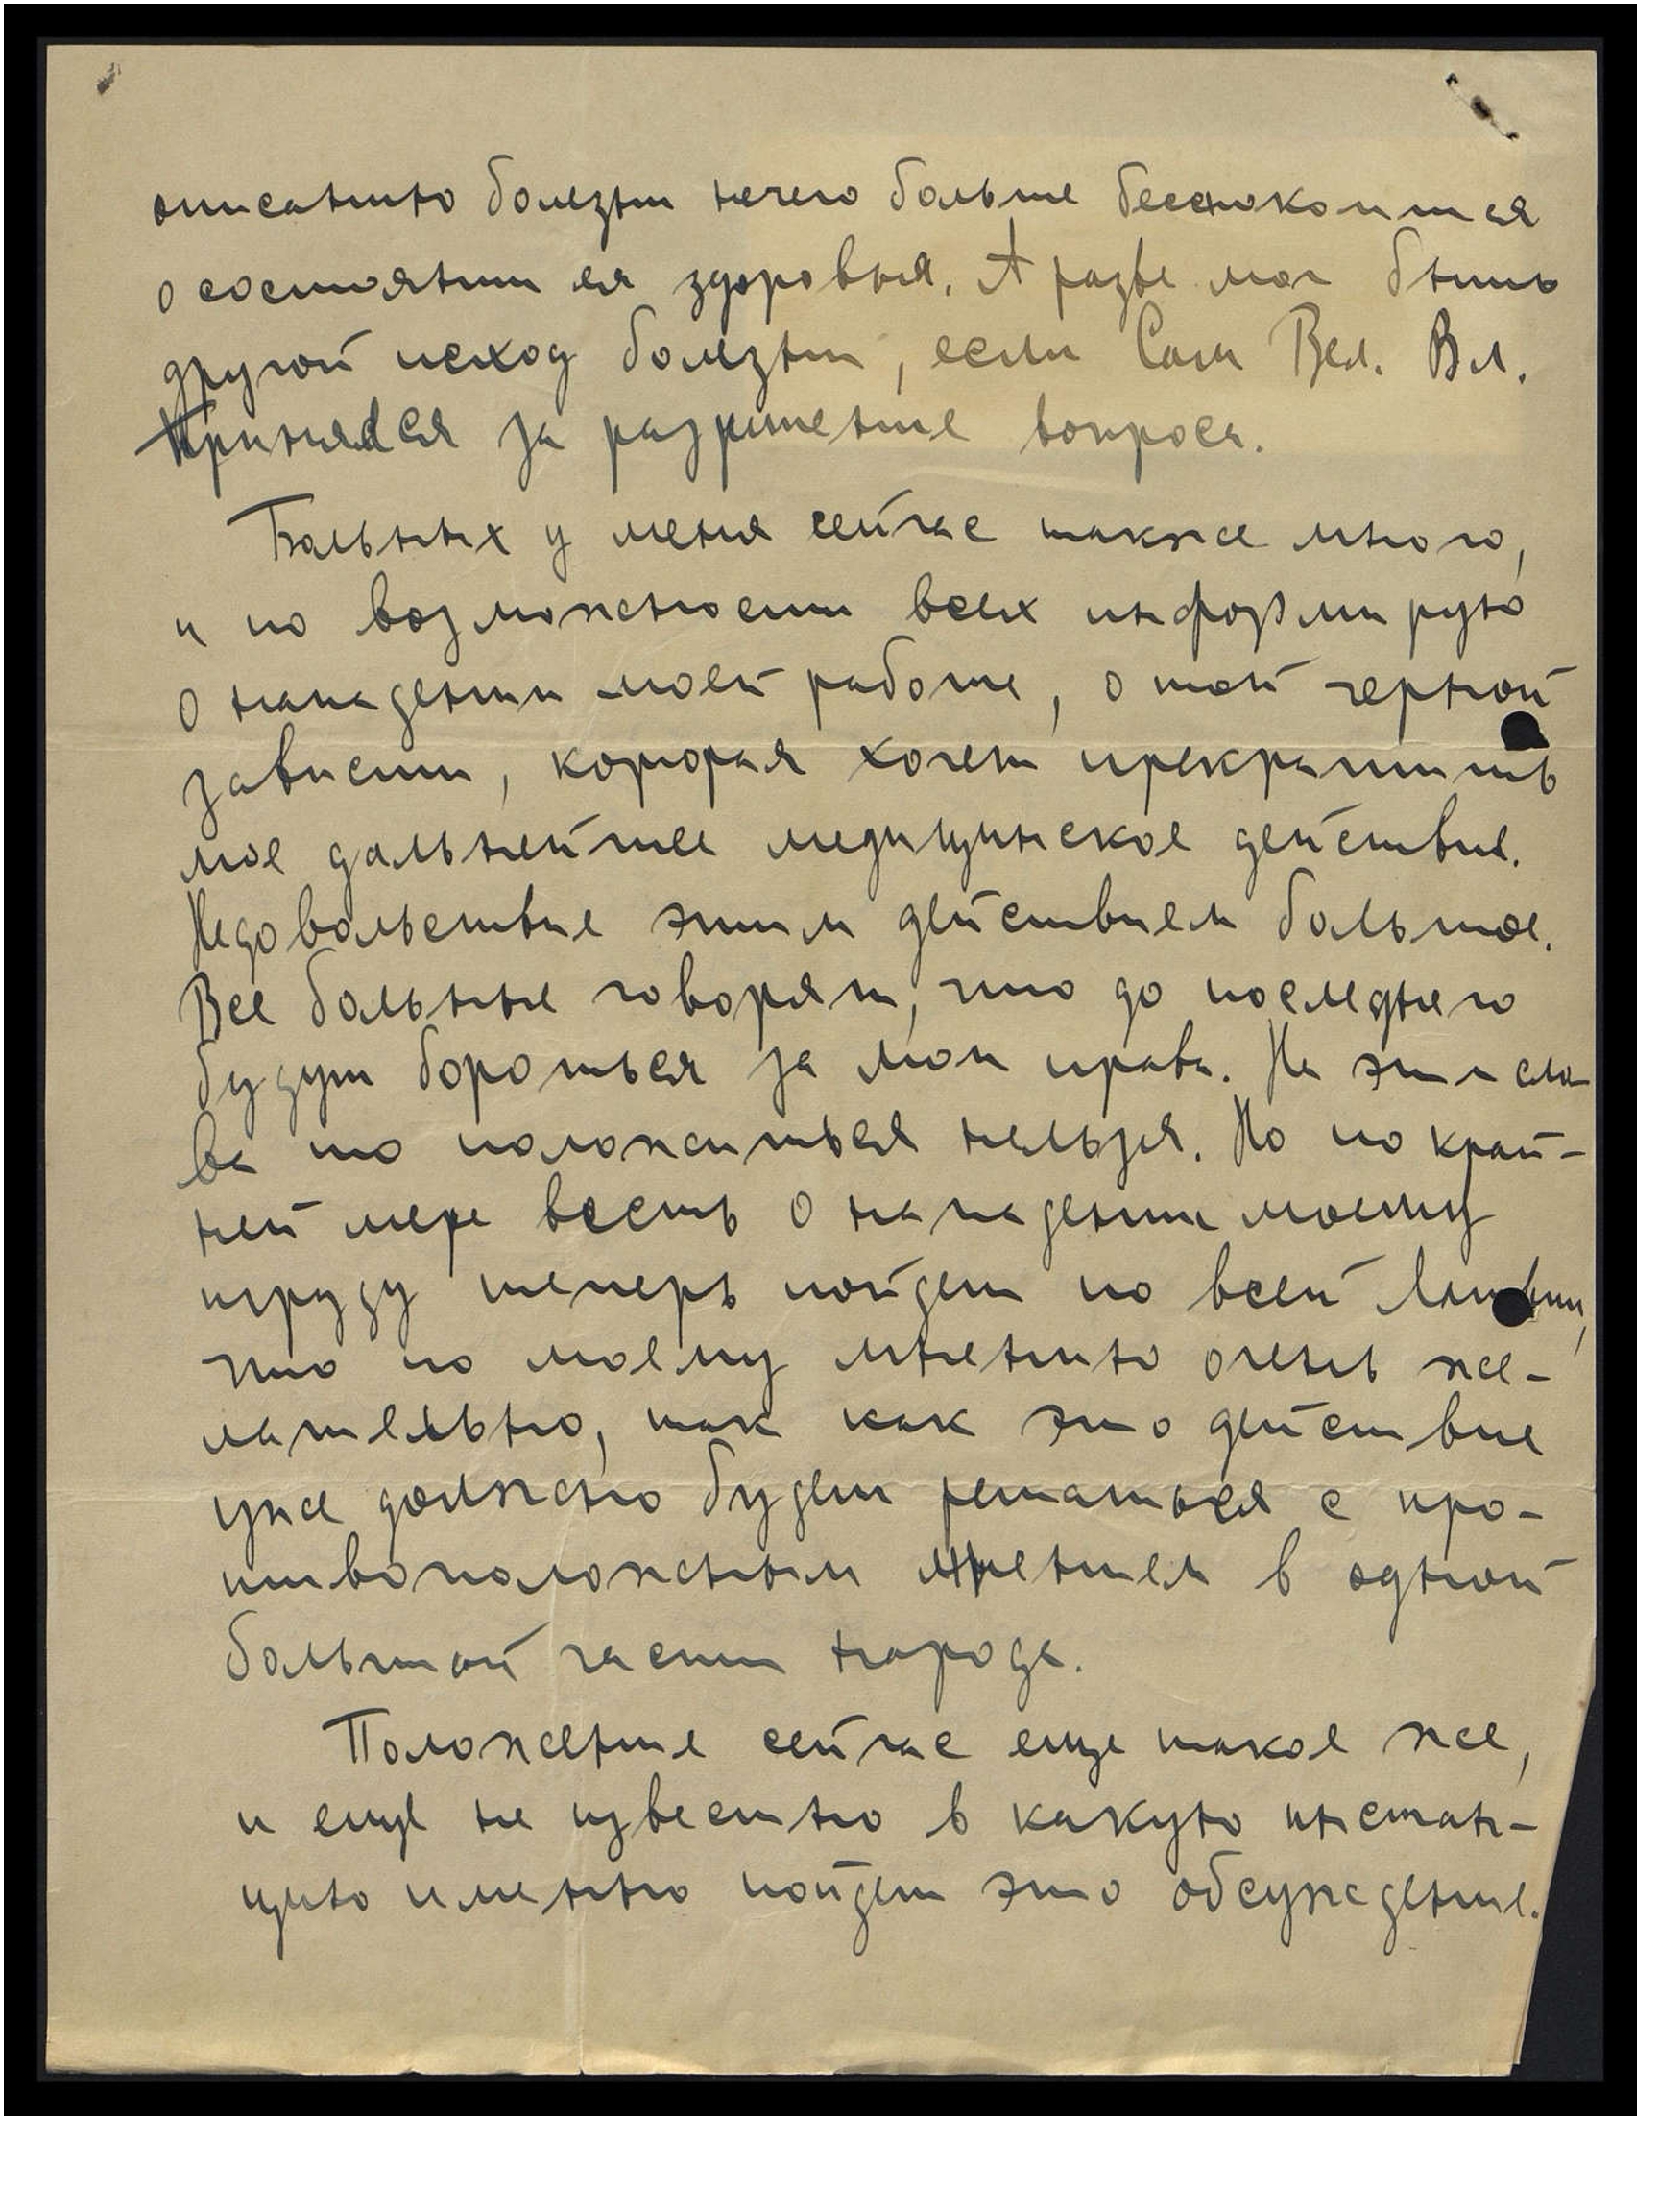 описанию болезни нечего больше беспокоится
о состоянии ея здоровья. А разве мог быть
другой исход болезни, если Сам Вел. Вл.
принялся за разрешение вопроса.
Больных у меня сейчас также много,
и по возможности всех информирую
о нападении моей работе, о той черной
зависти, которая хочет прекратить
мое дальнейшее медицинское действие.
Недовольствие этим действием большое.
Все больные говорят, что до последнего
будут бороться за мои права. На эти сло-
ва то положиться нельзя. Но по край-
ней мере весть о нападении моему
труду теперь пойдет по всей
что по моему мнению очень же-
лательно, так как это действие
уже должно будет решаться с про-
тивоположным мнением в одной
большой части народа.
Положение сейчас еще такое же,
и еще не известно в какую инстан-
цию именно пойдет это обсуждение.